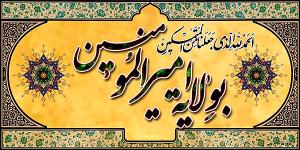 الحمدلله الذی جعلنا من المتمسکین
بولایة امیرالمؤمنین